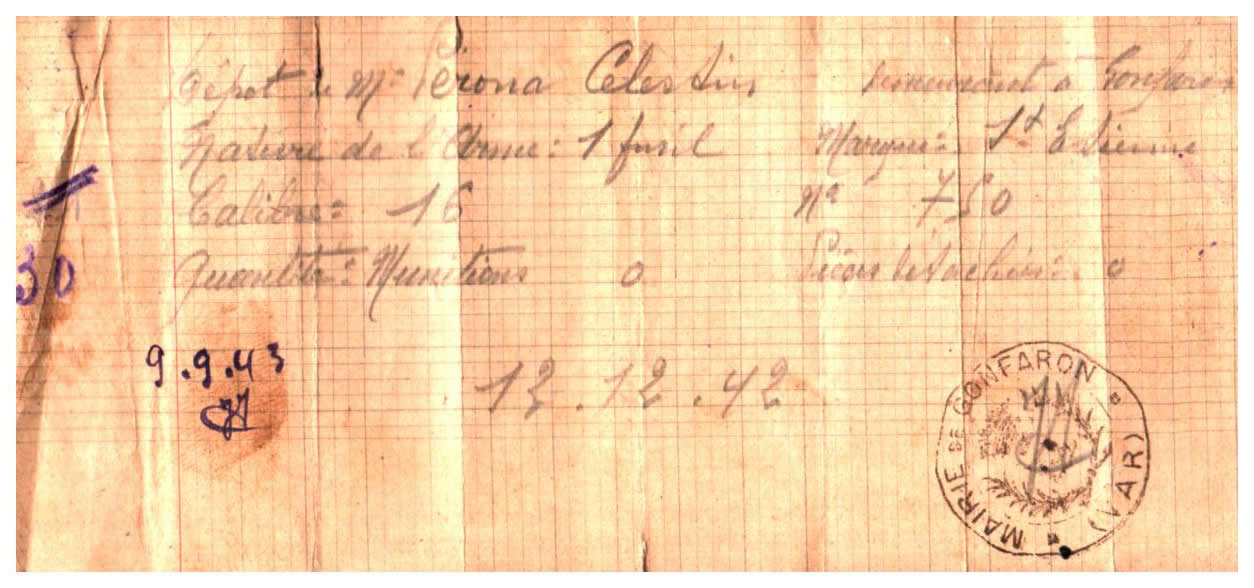 Dépot de Mr Pérona Célestin demeurant à Gonfaron
Nature de l'Arme: 1 fusil Marque: St Etienne
Calibre: 16 No 750
Quantité: Munitions 0 Pièces détachées: 0
30
9.9.43
12.12.42
MAIRIE DE GONFARON (VAR)